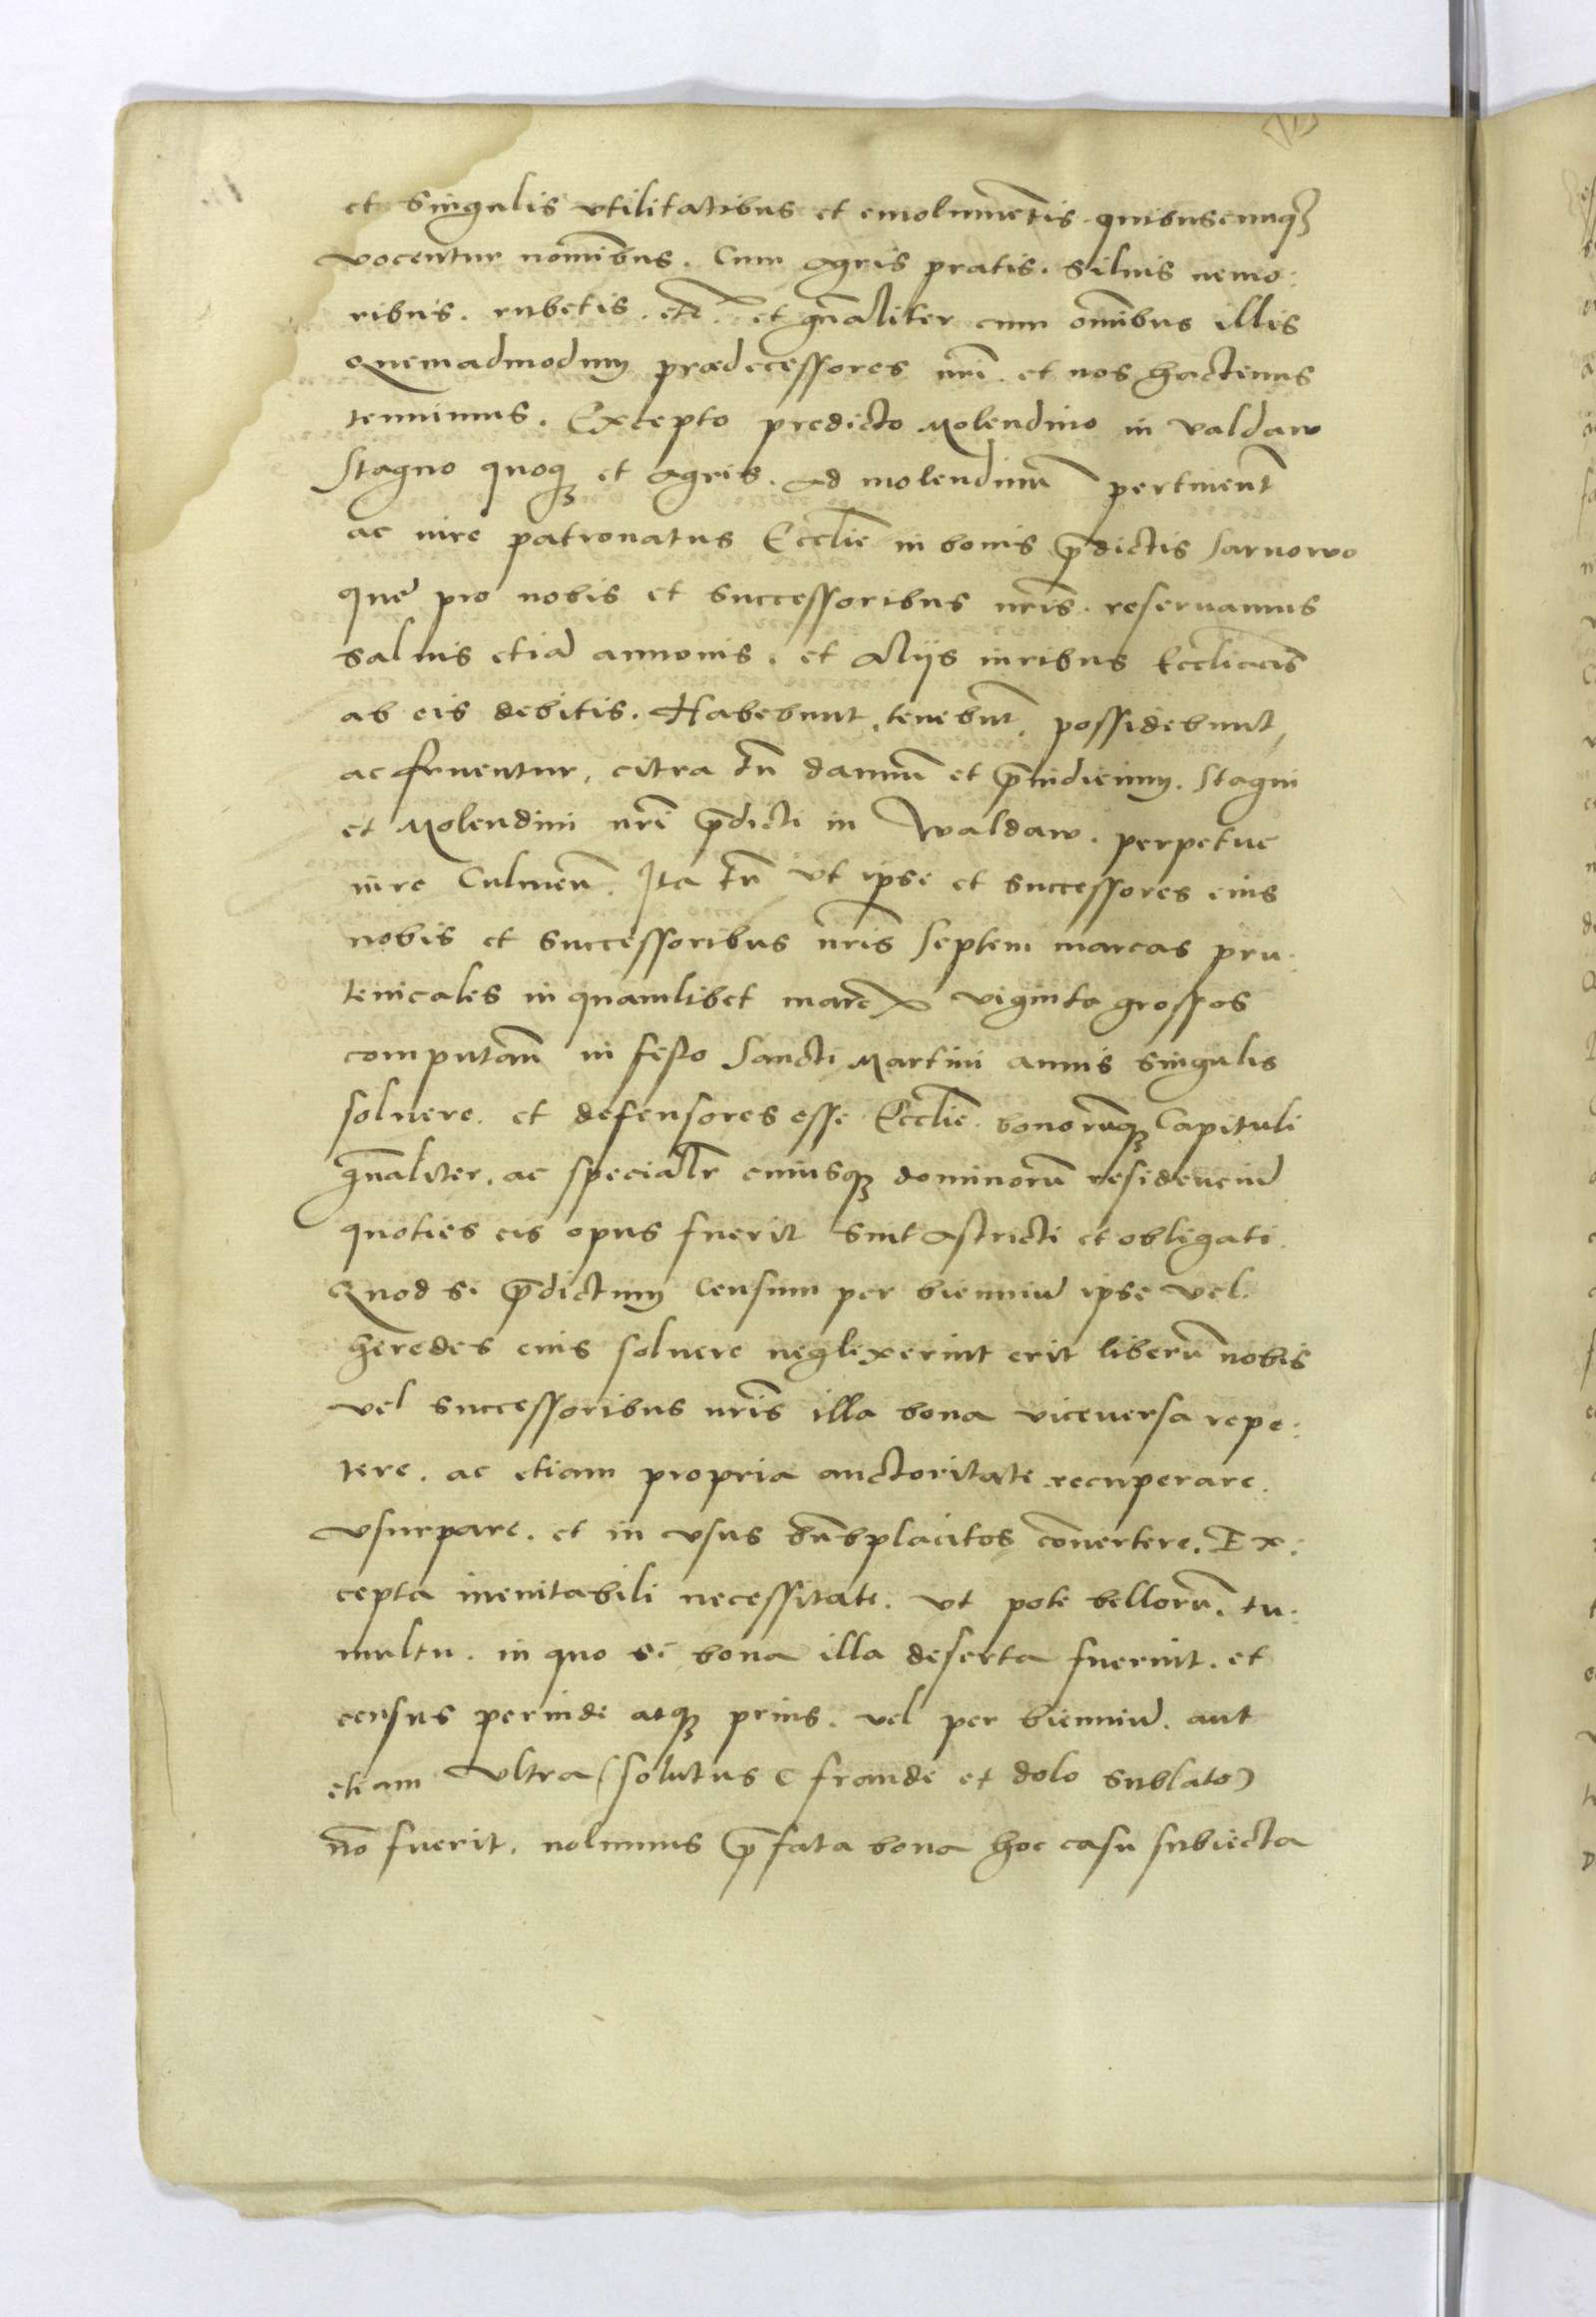 et singulis vtilitatibus et emolumẽtis quibuscunqꝫ
vocentur nomībus. Cum agris pratis. siluis nemo:
ribus. rubetis. etc̃. et gn̄aliter cum om̄ibus illis
Quemadmodum prædecessores nrī. et nos hactenus
tenuimus. Excepto predicto Molendino in valdaw
Stagno quoqꝫ et agris. ad molendinū pertinent̄
ac iure patronatus Ecclīe in bonis p̄dictis Sarnowo
que pro nobis et successoribus nrīs. reseruamus
saluis etiā annonis. et alijs iuribus Ecclīacis
ab eis debitis. Habebunt, tenebūt, possidebunt,
ac fruentur, citra tn̄ damnū et p̄iudicium. Stagni
et Molendini nrī p̄dicti in Waldaw. perpetue
iure Culmeñ. Ita tn̄ vt ipse et successores eius
nobis et successoribus nrīs septem marcas pru:
tenicales in quamlibet marc̃ viginta grossos
computañ in festo Sancti Martini annis singulis
soluere. et defensores esse Ecclīe. bonorūqꝫ Capituli
gn̄aliter. ac specialr̄ cuiusqꝫ dominorū residenciū
quoties eis opus fuerit sint astricti et obligati.
Quod si p̄dictum Censum per bienniū ipse vel
heredes eius soluere neglexerint erit liberū nobis
vel successoribus nrīs illa bona viceuersa repe:
tere. ac etiam propria auctoritate recuperare.
vsurpare. et in vsus bn̄placitos cōuertere. Ex:
cepta ineuitabili necessitate. vt pote bellorū. tu:
multu. in quo si bona illa deserta fuerint. et
census perinde atqꝫ prius. vel per bienniū. aut
etiam vltra (solutus (fraude et dolo sublato)
nō fuerit. nolumus p̄fata bona hoc casu subiecta